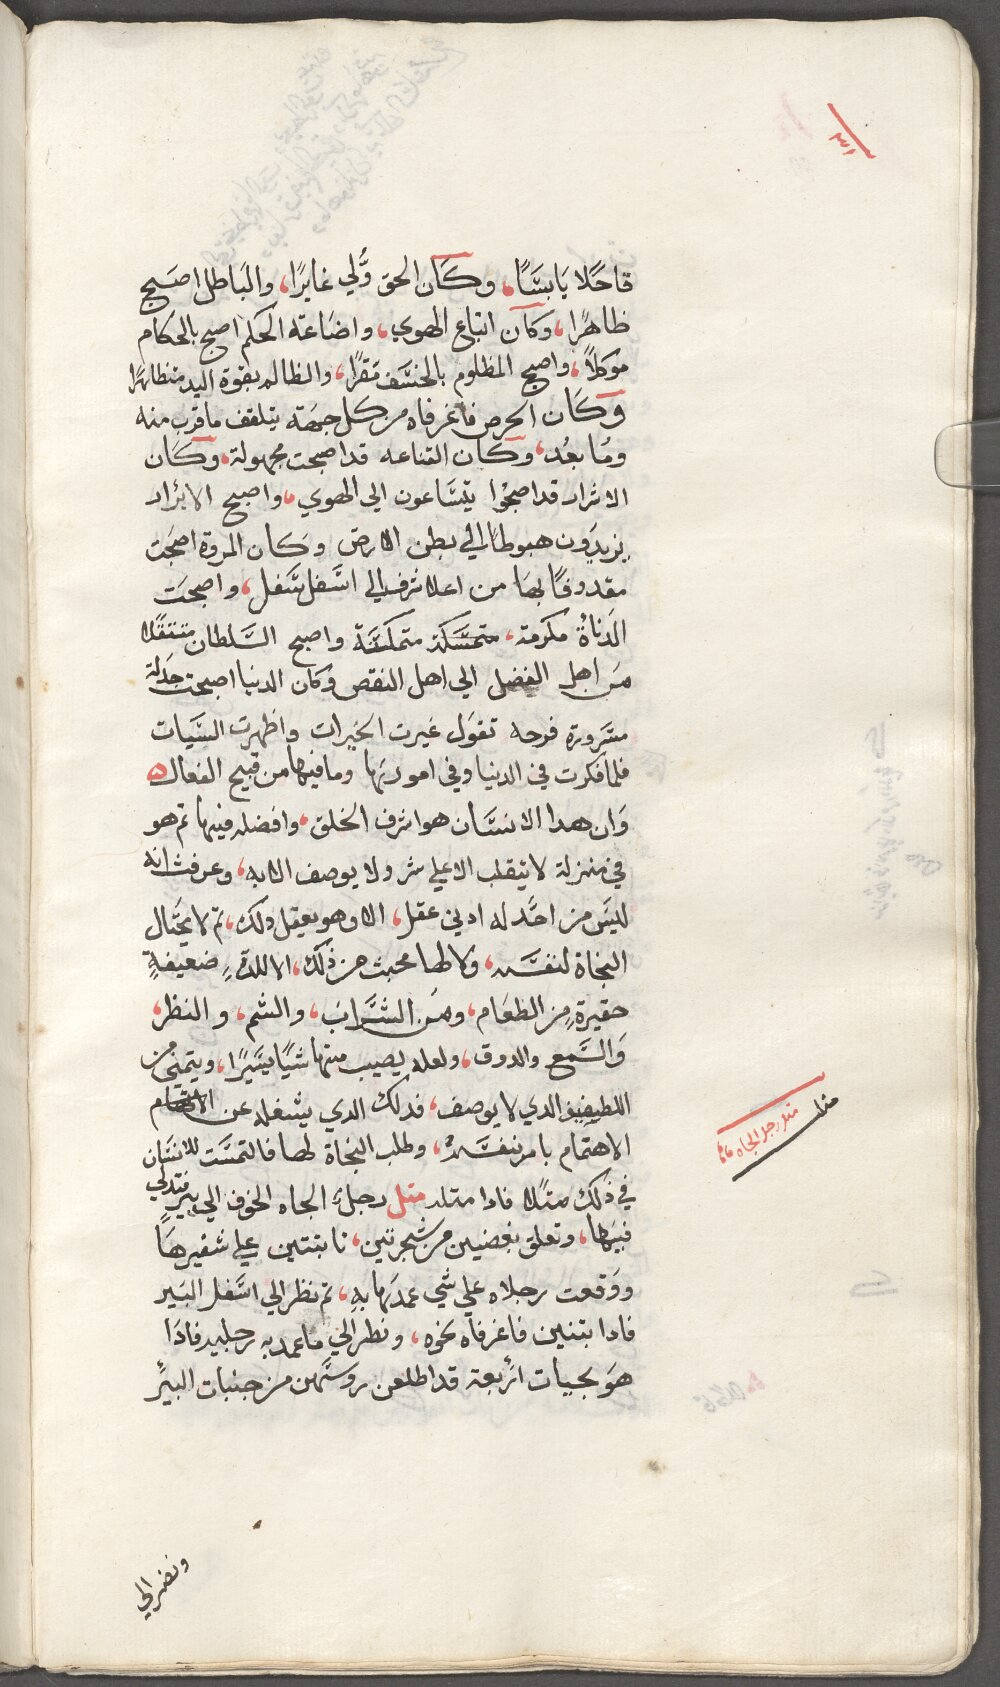 قاحلا يابسًا، وكان الحق ولي غايرًا، والباطل اصبح
ظاهرًا، وكان اتباع الهوي، واضاعة الحكم اصبح بالحكام
موكلاً، واصبح المظلوم بالخسف مقرًا، والظالم بقوة اليد متظاهرًا
وكان الحرص فاغر فاه من كل جهة يتلقف ما قرب منه
وما بعُد، وكان القناعه قد اصبحت مجهولة، وكان
الاشرار قد اصبحوا يتساعون الي الهوي، واصبح الابرار
يزيدون هبوطا الي بطن الارض وكان المروة اصبحت
مقدوفًا بها من اعلا شرف الي اسفل سفل، واصبحت
الدناة مكرمة، متمسكة متمكنة واصبح السلطان متنقلا
من اهل الفضل الي اهل النقص وكان الدنيا اصبحت جدلة
مسرورة فرحه تقول غيرت الخيرات واظهرت السيات
فلما فكرت في الدنيا وفي امورها وما فيها من قبيح الفعال
وان هدا الانسان هو اشرف الخلق، وافضله فيها تم هو
في منزلة لا يتقلب الا علي شر ولا يوصف الا به، وعرفت انه
ليس من احد له ادني عقل، الا وهو يعقل دلك، تم لا يحتال
النجاة لنفسه، ولا لها محبت من ذلك، الا للدة ضعيفةٍ
حقيرةٍ من الطعام، ومن الشراب، والشم، والنظر،
والسمع والدوق، ولعله يصيب منها شيًا يسيرًا، ويتمني من
اللطيفيف الدي لا يوصف، فدلك الدي يشغله عن
الاهتمام بامر نفسه، وطلب النجاة لها فالتمست للانسان
في ذلك متلا فادا متله متل رجل الجاه الخوف الي بير فتدلي
فيها، وتعلق بغصنين من شجرتين، نابتتين علي شفيرها
ووقعت رجلاه علي شي عمدها به، تم نظر الي اسفل البير
فادا بتنين فاغر فاه نحوه، ونظر الي ما عمد به رجليه فادا
هو بحيات اربعة قد اطلعن روسهن من جنبات البير
مثل
متل رجل الجاه
ونضر الي